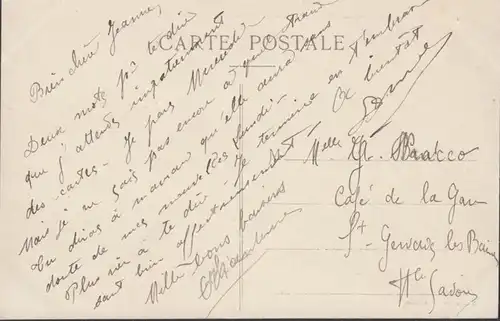 CARTE POSTALE
Bien chère Jeanne,
Deux mots pr te dire
que j'attends impatiemment
des cartes. Je pars Mercredi
Mais je ne sais pas encore à quel
Tu diras à maman qu'elle aura sans
doute de mes nouvelles Lundi.
Plus rien à te dire. Je termine en t'embrassant
bien affectueusement. A bientôt
Mille bons baisers
Melle
Café de la Gare
St Gervais les Bains
Hte Savoie